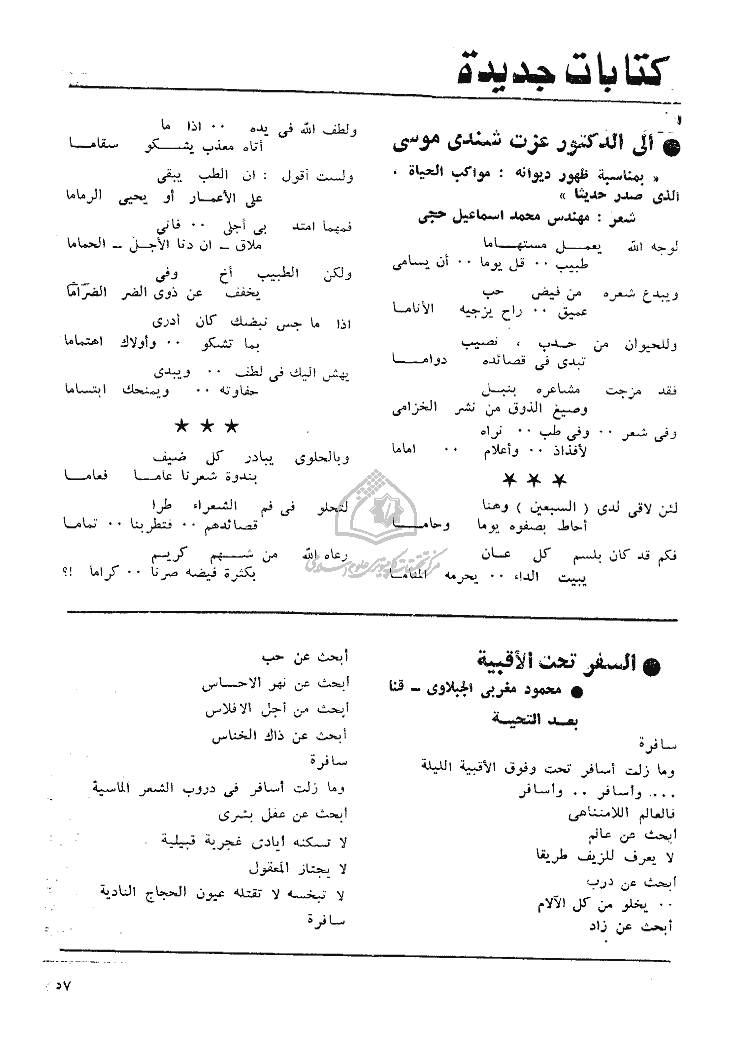 كتابات جديدة
● الى الدكتور عزت شندى موسى
« بمناسبة ظهور ديوانه : مواكب الحياة ،
الذى صدر حديثا »
شعر : مهندس محمد اسماعيل حجى
لوجه الله يعمــل مستهــاما
طبيب ٠٠ قل يوما ٠٠ أن يسامى
ويبدع شعره من فيض حب
عميق ٠٠ راح يزجيه الأنامــا
وللحيوان من حـدب ، نصيب
تبدى فى قصائده دوامــا
فقد مزجت مشاعره بنبـل
وصيغ الذوق من نشر الخزامى
وفى شعر ٠٠ وفى طب ٠٠ نراه
لأفذاذ ٠٠ وأعلام ٠٠ اماما
★ ★ ★
لئن لاقى لدى ( السبعين ) وهنا
أحاط بصفوه يوما وحامــا
فكم قد كان بلسم كل عــان
يبيت الداء ٠٠ يحرمه المنامــا
ولطف الله فى يده ٠٠ اذا ما
أتاه معذب يشــكو سقامــا
ولست أقول : ان الطب يبقى
على الأعمار أو يحيى الرماما
فمهما امتد بى أجلى ٠٠ فانى
ملاق ـ ان دنا الأجـل ـ الحماما
ولكن الطبيب أخ وفى
يخفف عن ذوى الضر الضراما
اذا ما جس نبضك كان أدرى
بما تشكو ٠٠ وأولاك اهتماما
يهش اليك فى لطف ٠٠ ويبدى
حفاوته ٠٠ ويمنحك ابتساما
★ ★ ★
وبالحلوى يبادر كل ضيف
بندوة شعرنا عامــا فعامــا
لتحلو فى فم الشعراء طرا
قصائدهم ٠٠ فتطربنا ٠٠ تماما
رعاه الله من شــهم كريــم
بكثرة فيضه صرنا ٠٠ كراما !؟
مركز تحقيقات كامپيوترى علوم اسلامى
● السفر تحت الأقبية
● محمود مغربى الجبلاوى ـ قنا
بعــد التحيــة
سافرة
وما زلت أسافر تحت وفوق الأقبية الليلة
٠٠٠ وأسافر ٠٠ وأسافر
فالعالم اللامتناهى
أبحث عن عالم
لا يعرف للزيف طريقا
أبحث عن درب
٠٠ يخلو من كل الآلام
أبحث عن زاد
أبحث عن حب
أبحث عن نهر الاحساس
أبحث من أجل الافلاس
أبحث عن ذاك الخناس
سافرة
وما زلت أسافر فى دروب الشعر الماسية
أبحث عن عقل بشرى
لا تسكنه أيادى غجرية قبيلية
لا يجتاز المعقول
لا تبخسه لا تقتله عيون الحجاج النادية
سافرة
٥٧